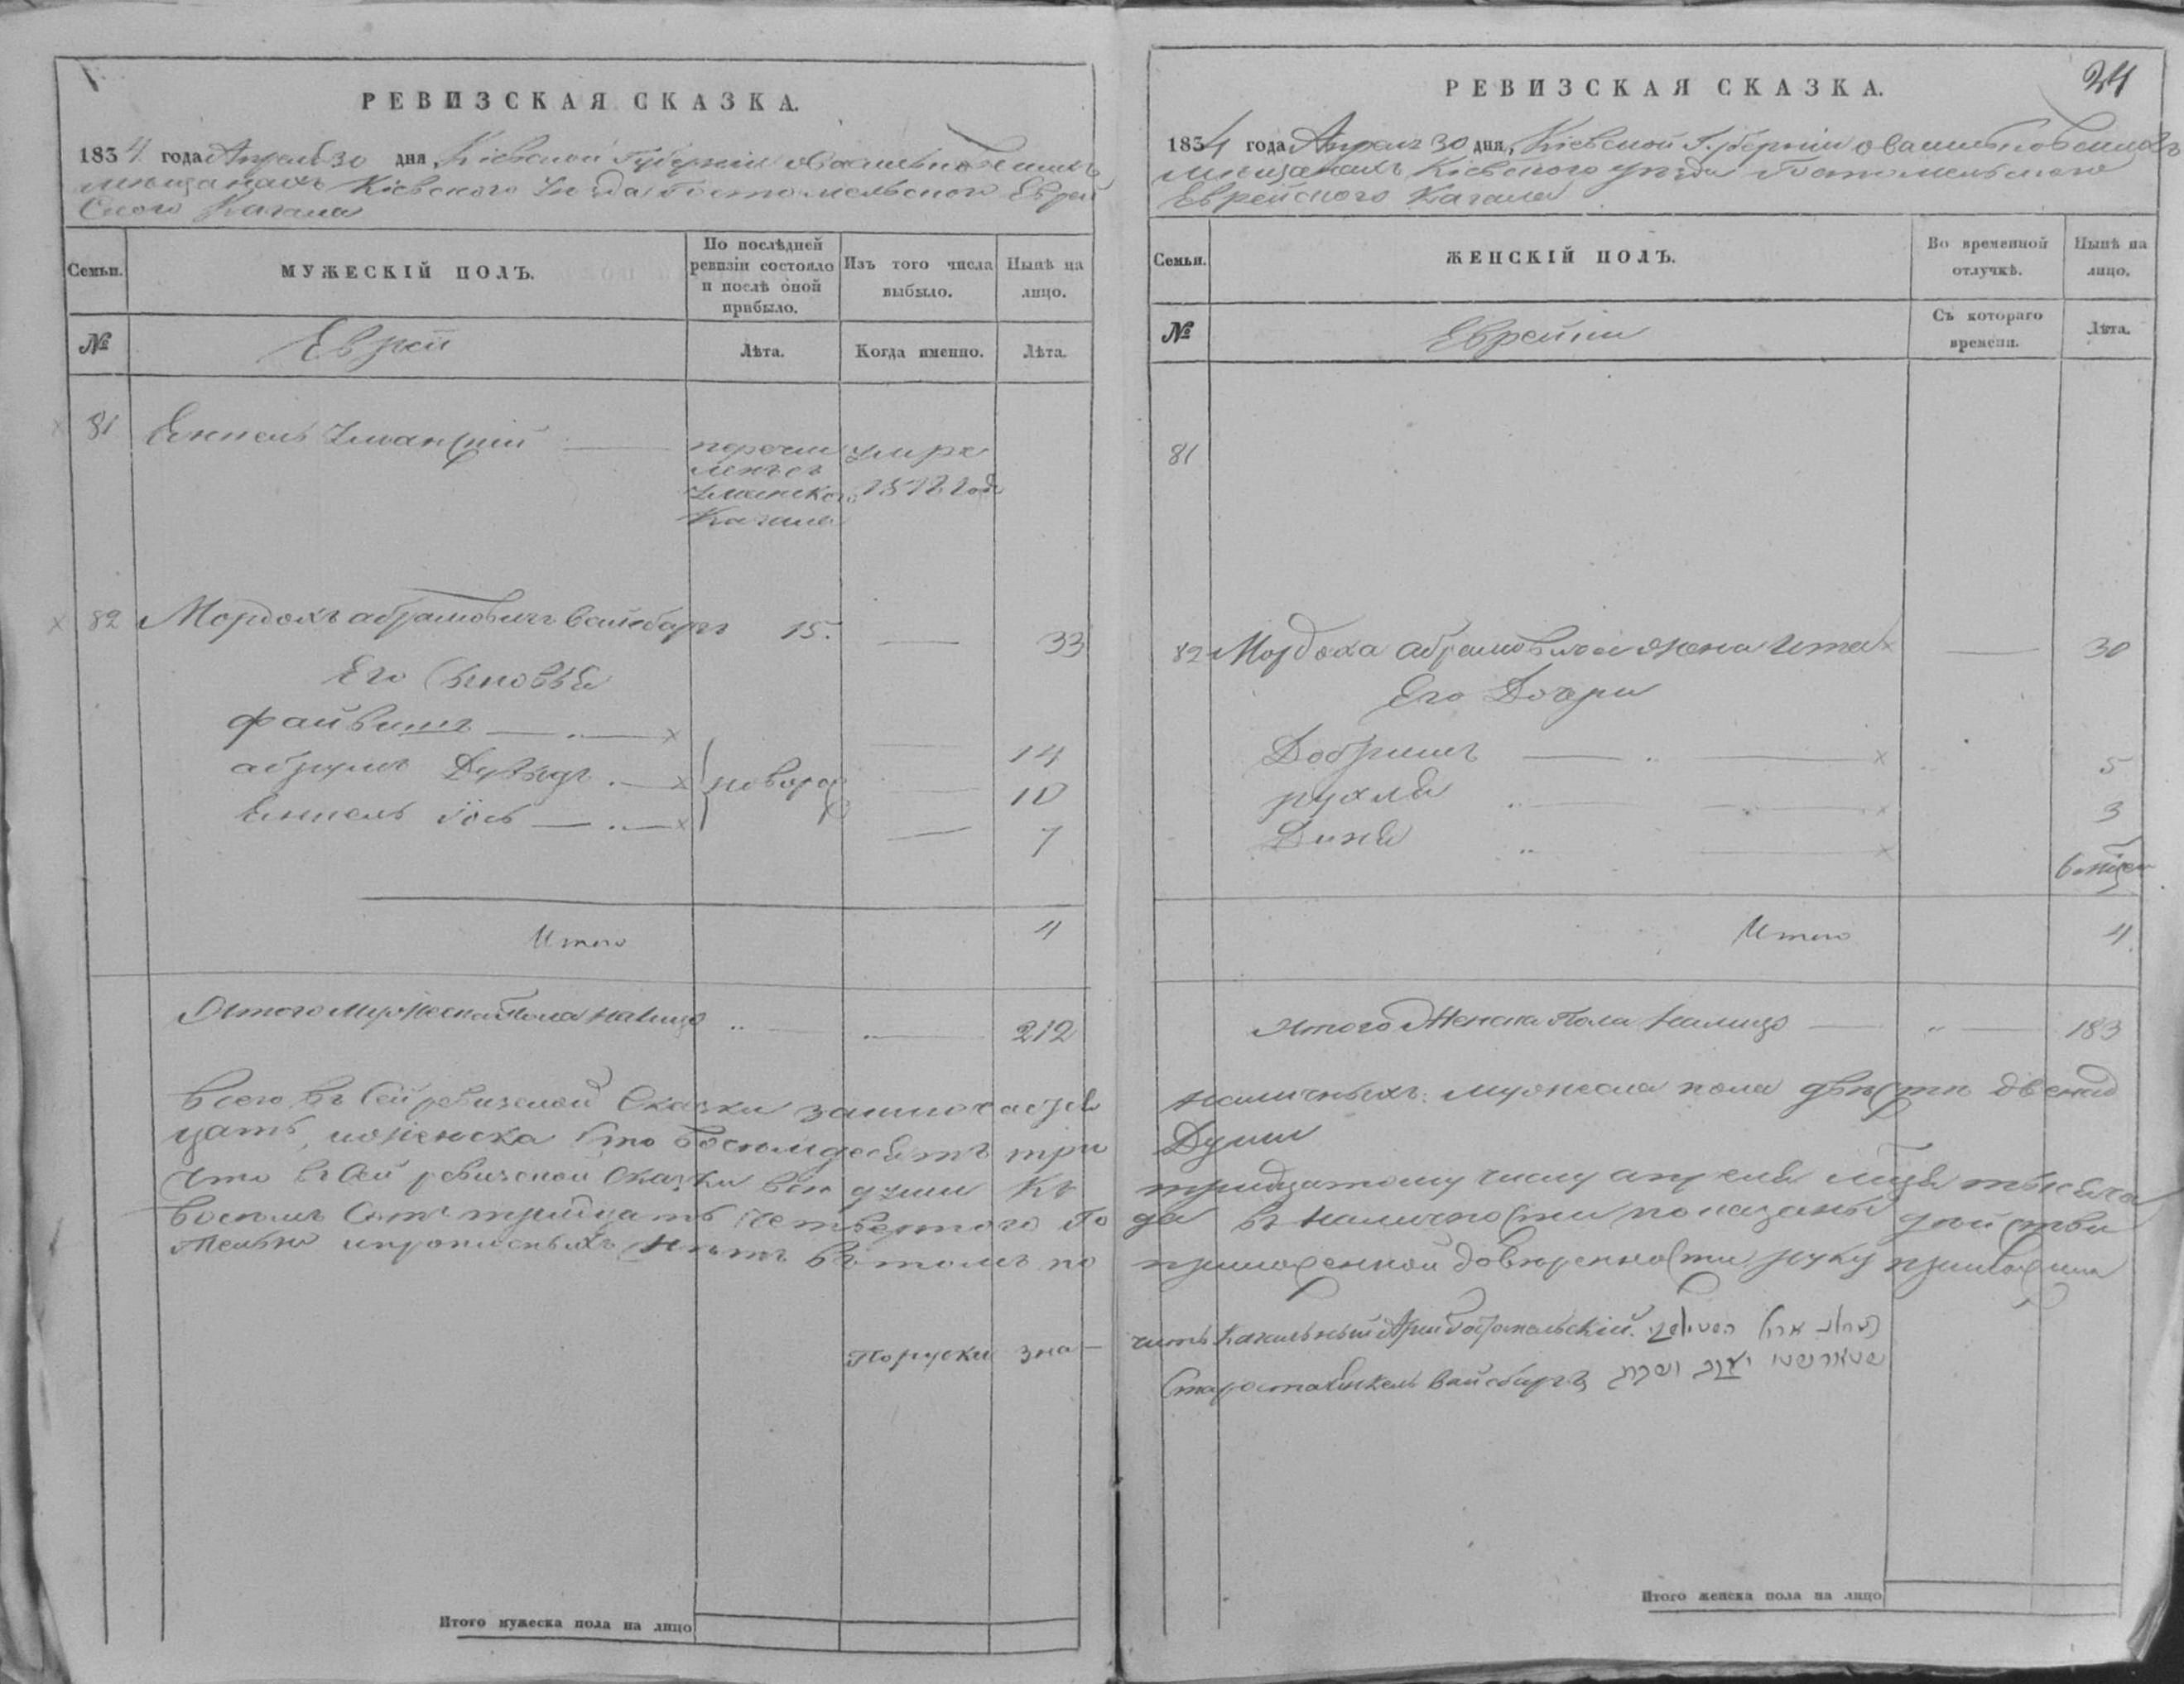 РЕВИЗСКАЯ СКАЗКА.
1834 года Апреля 30 дня, Кіевской Губерніи о Васильковских
мещанахъ Кіевского Уезда Гостомельского Еврей
ского Кагала
Семьи.
МУЖЕСКІЙ ПОЛЪ.
По послѣдней ревизіи состояло и послѣ оной прибыло.
Изъ того числа выбыло.
Нынѣ на лицо.
№
Евреи
Лѣта.
Когда именно.
Лѣта.
81 Енкель Уманский
перечи умре
ленъ съ
Уманского
Кагала
82 Мордохъ абрамовичъ Вайсбаргъ 15. 33
Его Сыновья
файвишъ 14
абрумъ 10
Енкель Іось новорож 7
Итого 4
Итого Мужеска Пола налицо 212
Всего въ Сей ревизской Сказки
цать, и женска Сто восемдесятъ три
что въ Сей ревизской Сказки все души Къ
восемь Сотъ тридцать четвертого Го
тельно и прописныхъ Нетъ въ томъ по
Поруски зна-
Итого мужеска пола на лицо
24
РЕВИЗСКАЯ СКАЗКА.
1834 года Апреля 30 дня, Кіевской Губерніи о Васильковскихъ
мещанахъ Кіевского уезда Гостомельского
Еврейского Кагала
Семьи.
ЖЕНСКІЙ ПОЛЪ.
Во временной отлучкѣ.
Нынѣ на лицо.
№
Еврейки
Съ котораго времени.
Лѣта.
81
82 Мордоха абрамовича жена Ита 30
Его Дочери
Добришъ 5
рухля 3
Диня 6 мѣсец
Итого 4
Итого Женска Пола Налицо 183
наличныхъ: мужеска пола двести двенад
Души
тридцатому числу апреля тысяча
да въ наличности показаны действи
доверенности руку приложили
чить Кагальный Ары Гостомельский.
Староста Енкель Вайсбаргъ
Итого женска пола на лицо